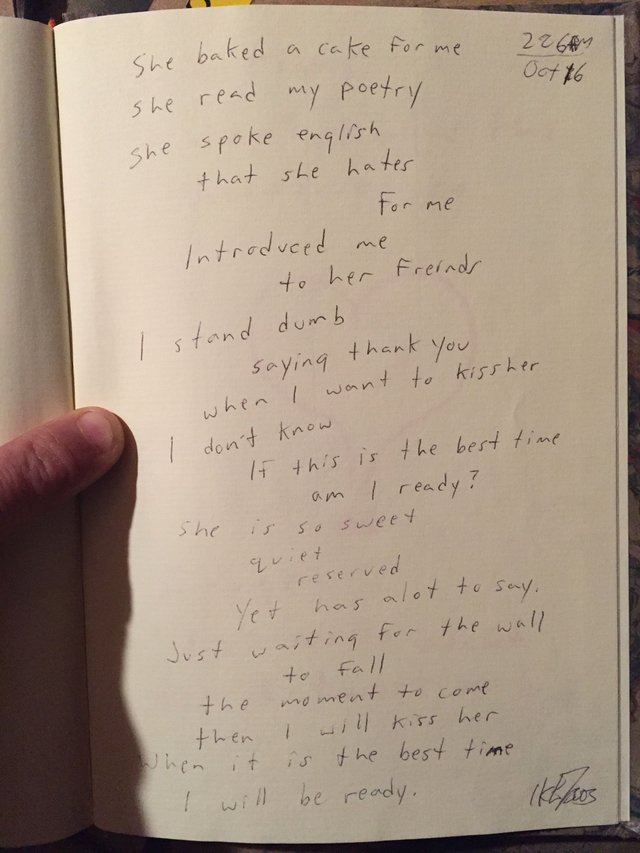 She baked a cake for me
226AM
Oct 16
she read my poetry
She spoke english
that she hates
For me
Introduced me
to her Freinds
I stand dumb
saying thank you
when I want to kiss her
I don't know
If this is the best time
am I ready?
She is so sweet
quiet
reserved
Yet has alot to say.
Just waiting for the wall
to fall
the moment to come
then I will kiss her
When it is the best time
I will be ready.